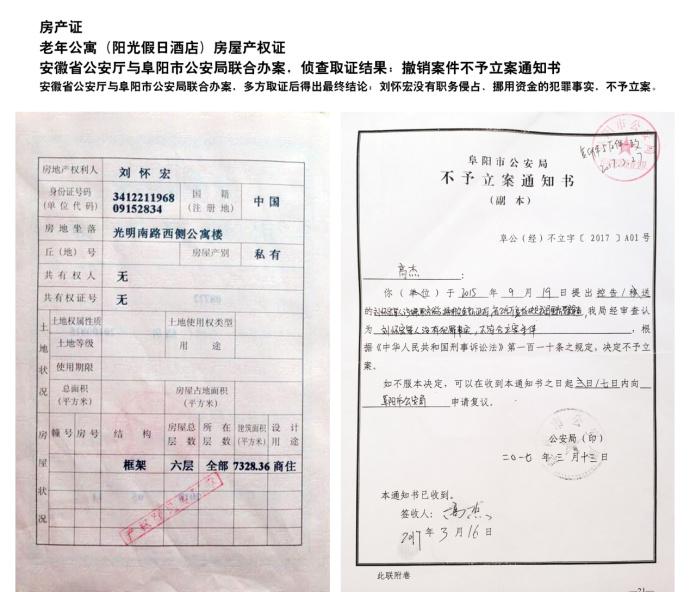 房产证
老年公寓（阳光假日酒店）房屋产权证
安徽省公安厅与阜阳市公安局联合办案．侦查取证结果：撤销案件不予立案通知书
安徽省公安厅与阜阳市公安局联合办案．多方取证后得出最终结论：刘怀宏没有职务侵占、挪用资金的犯罪事实．不予立案。
房地产权利人 刘怀宏
身份证号码（单位代码） 341221196809152834 国籍（注册地） 中国
房地坐落 光明南路西侧公寓楼
丘（地）号 房屋产别 私有
共有权人 无
共有权证号 无
土地状况
土地权属性质 土地使用权类型
土地等级 用途
使用期限
总面积（平方米） 房屋占地面积（平方米）
房屋状况
幢号 房号 结构 房屋总层数 所在层数 建筑面积（平方米） 设计用途
框架 六层 全部 7328.36 商住
阜阳市公安局
不予立案通知书
（副本）
阜公（经）不立字〔2017〕A01号
高杰：
你（单位）于2015年9月19日提出控告/移送
的
我局经审查认
为刘怀宏等人没有犯罪事实，不符合立案条件，根
据《中华人民共和国刑事诉讼法》第一百一十条之规定，决定不予立
案。
如不服本决定，可以在收到本通知书之日起三日/七日内向
阜阳市公安局申请复议。
公安局（印）
二〇一七年三月十三日
本通知书已收到。
签收人：高杰
2017年3月16日
此联附卷
—21—